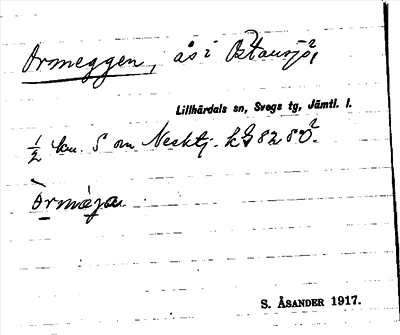 Ormeggen, ås i Östansjö²,
Lillhärdals sn, Svegs tg, Jämtl. l.
½ km. S om Necktj. kG 82 80².
òrmæ̀jan
S. ÅSANDER 1917.